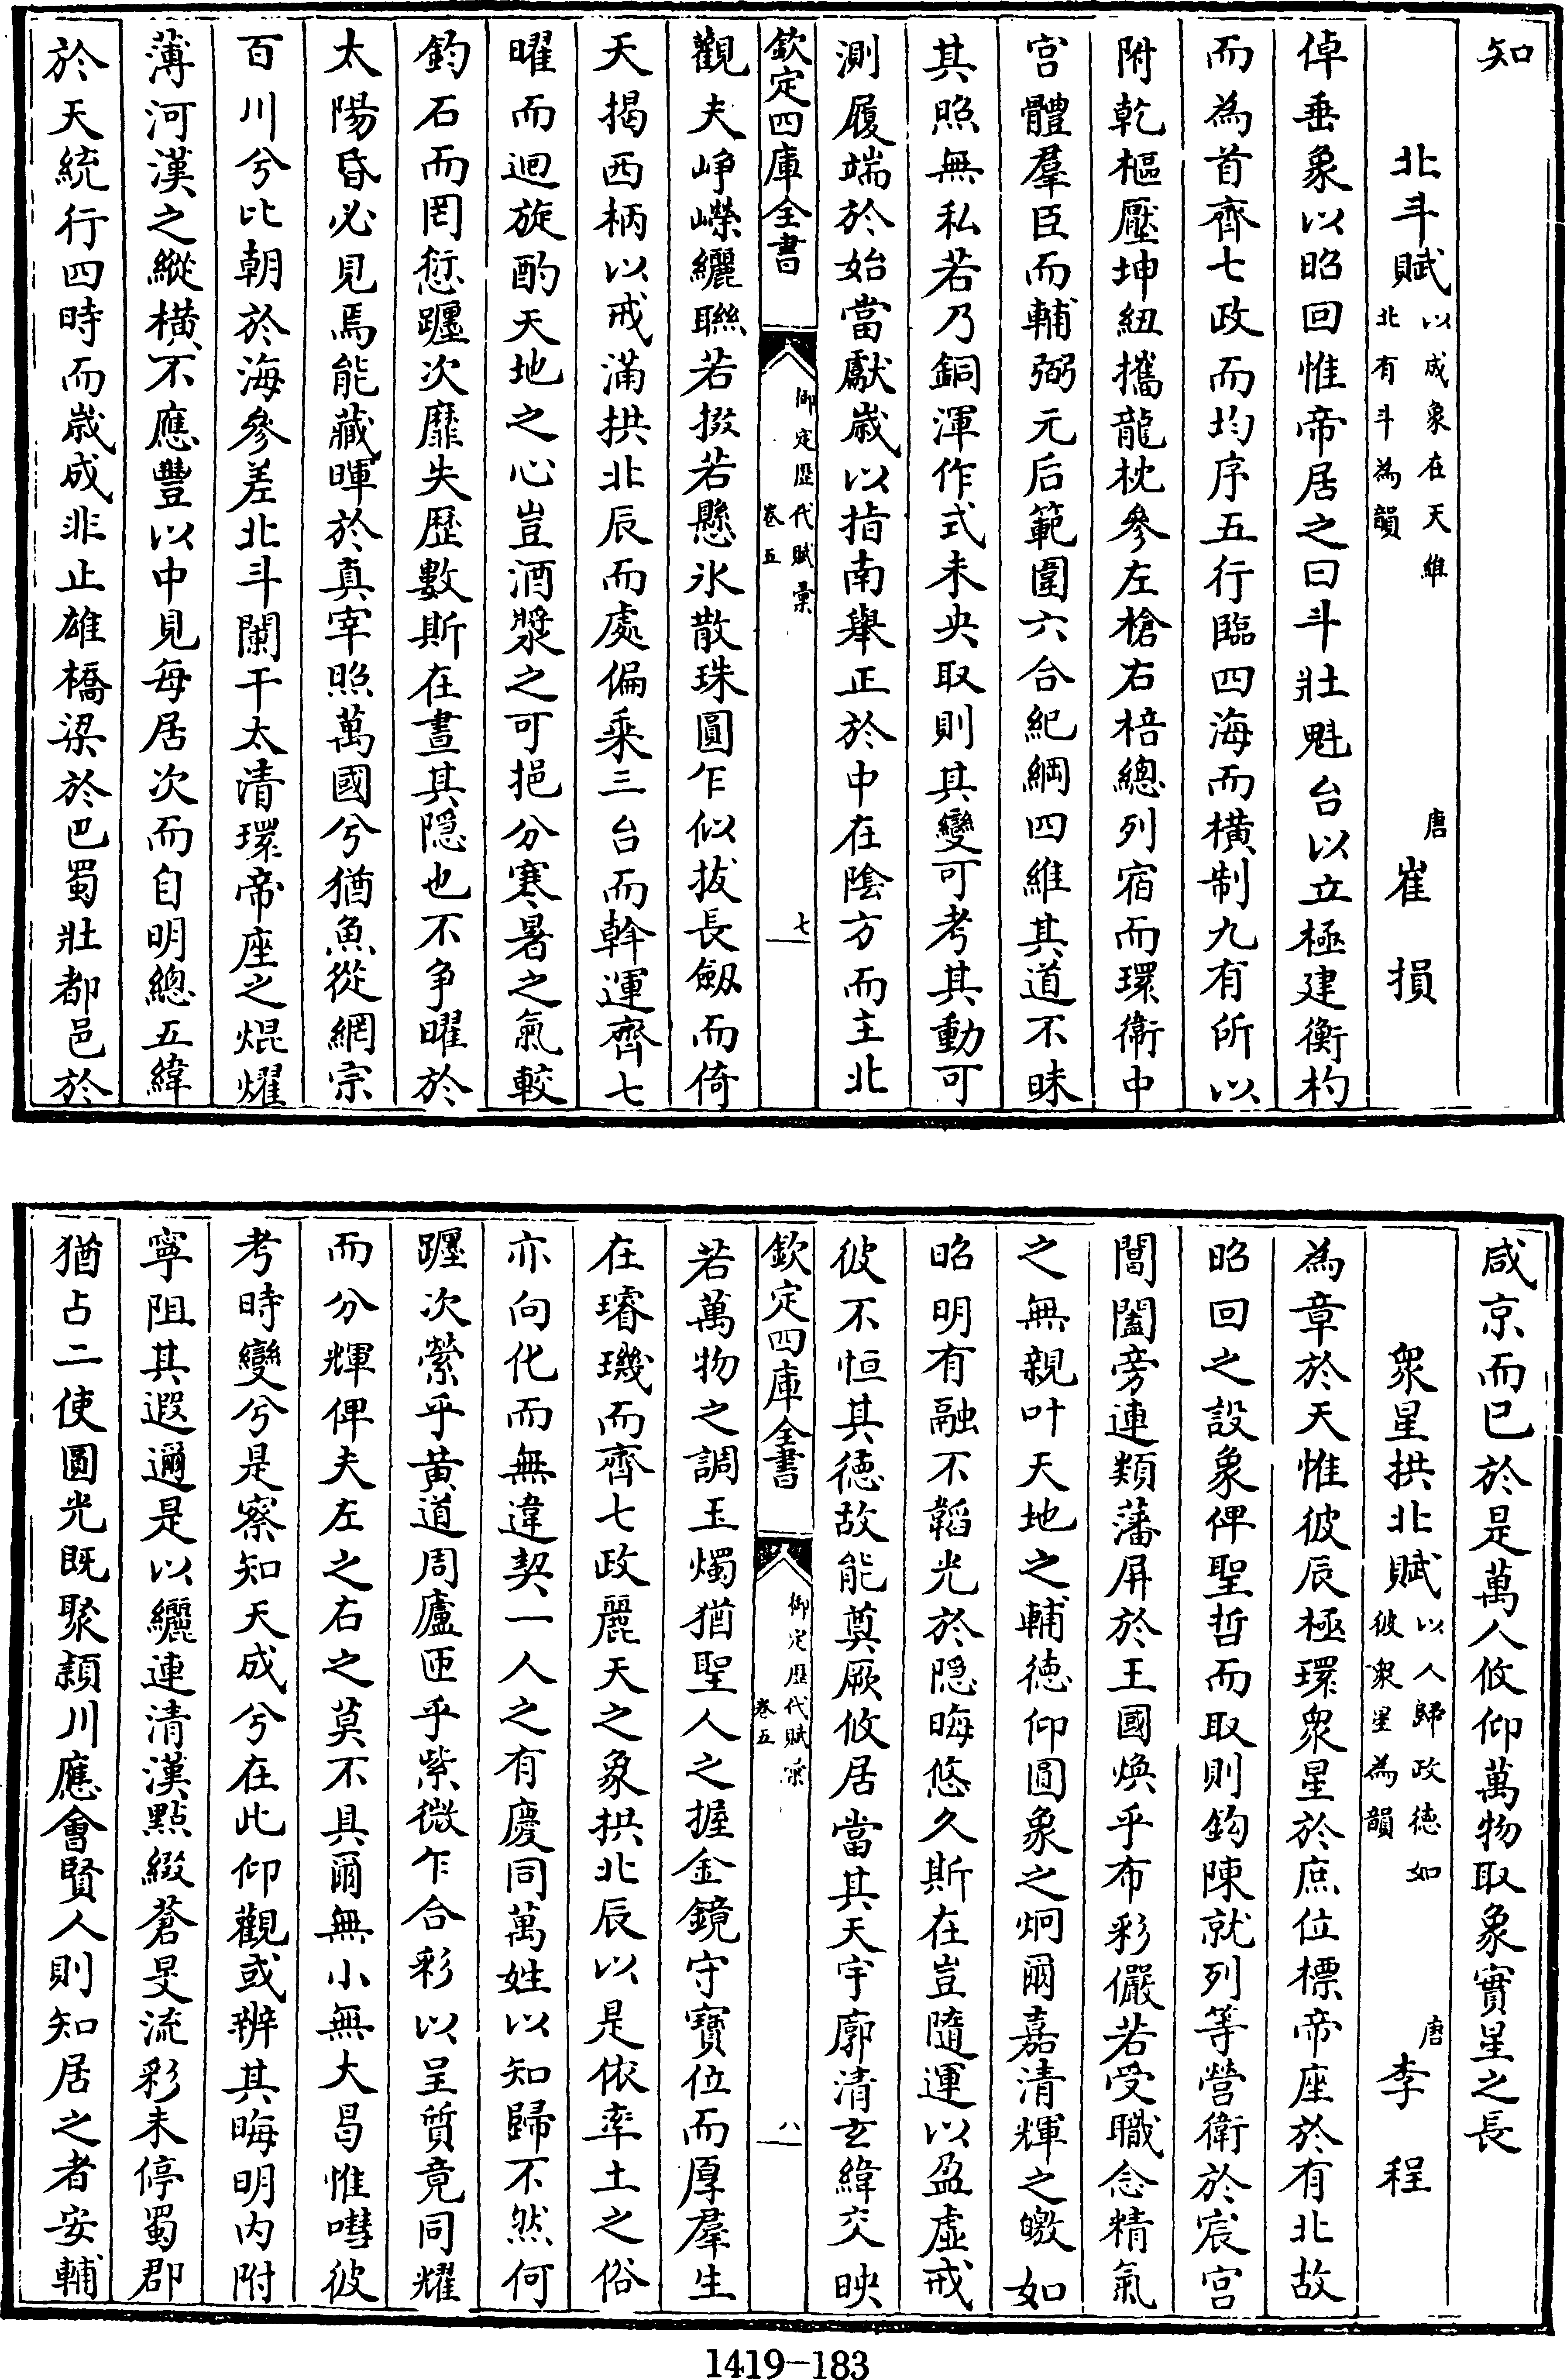 知
北斗賦以成象在天維北有斗為韻 唐崔損
倬垂象以昭回惟帝居之曰斗壯魁台以立極建衡杓
而為首齊七政而均序五行臨四海而橫制九有所以
附乾樞壓坤紐攜龍枕參左槍右棓總列宿而環衛中
宮體羣臣而輔弼元后範圍六合紀綱四維其道不昧
其照無私若乃銅渾作式未央取則其變可考其動可
測履端於始當獻歲以指南舉正於中在陰方而主北
欽定四庫全書 御定歷代賦彙 卷五 七
觀夫崢嶸纚聯若掇若懸氷散珠圓乍似拔長劔而倚
天揭西柄以戒滿拱北辰而處偏乘三台而斡運齊七
曜而迴旋酌天地之心豈酒漿之可挹分寒暑之氣較
鈞石而罔愆躔次靡失歷數斯在晝其隠也不爭曜於
太陽昏必見焉能藏暉於真宰照萬國兮猶魚從網宗
百川兮比朝於海參差北斗闌干太清環帝座之焜燿
薄河漢之縱橫不應豐以中見每居次而自明總五緯
於天統行四時而歲成非止雄橋梁於巴蜀壯都邑於
咸京而已於是萬人攸仰萬物取象實星之長
衆星拱北賦以人歸政徳如彼衆星為韻 唐李程
為章於天惟彼辰極環衆星於庶位標帝座於有北故
昭回之設象俾聖哲而取則鈎陳就列等營衛於宸宮
閶闔旁連類藩屏於王國煥乎布彩儼若受職念精氣
之無親叶天地之輔徳仰圓象之炯爾嘉清輝之皦如
昭明有融不韜光於隠晦悠久斯在豈隨運以盈虛戒
彼不恒其徳故能奠厥攸居當其天宇廓清玄緯交映
欽定四庫全書 御定歷代賦彙 卷五 八
若萬物之調玉燭猶聖人之握金鏡守寶位而厚羣生
在璿璣而齊七政麗天之象拱北辰以是依率土之俗
亦向化而無違契一人之有慶同萬姓以知歸不然何
躔次縈乎黃道周廬匝乎紫微乍合彩以呈質竟同耀
而分輝俾夫左之右之莫不具爾無小無大曷惟嘒彼
考時變兮是察知天成兮在此仰觀或辨其晦明內附
寧阻其遐邇是以纚連清漢點綴蒼旻流彩未停蜀郡
猶占二使圓光既聚潁川應會賢人則知居之者安輔
1419-183